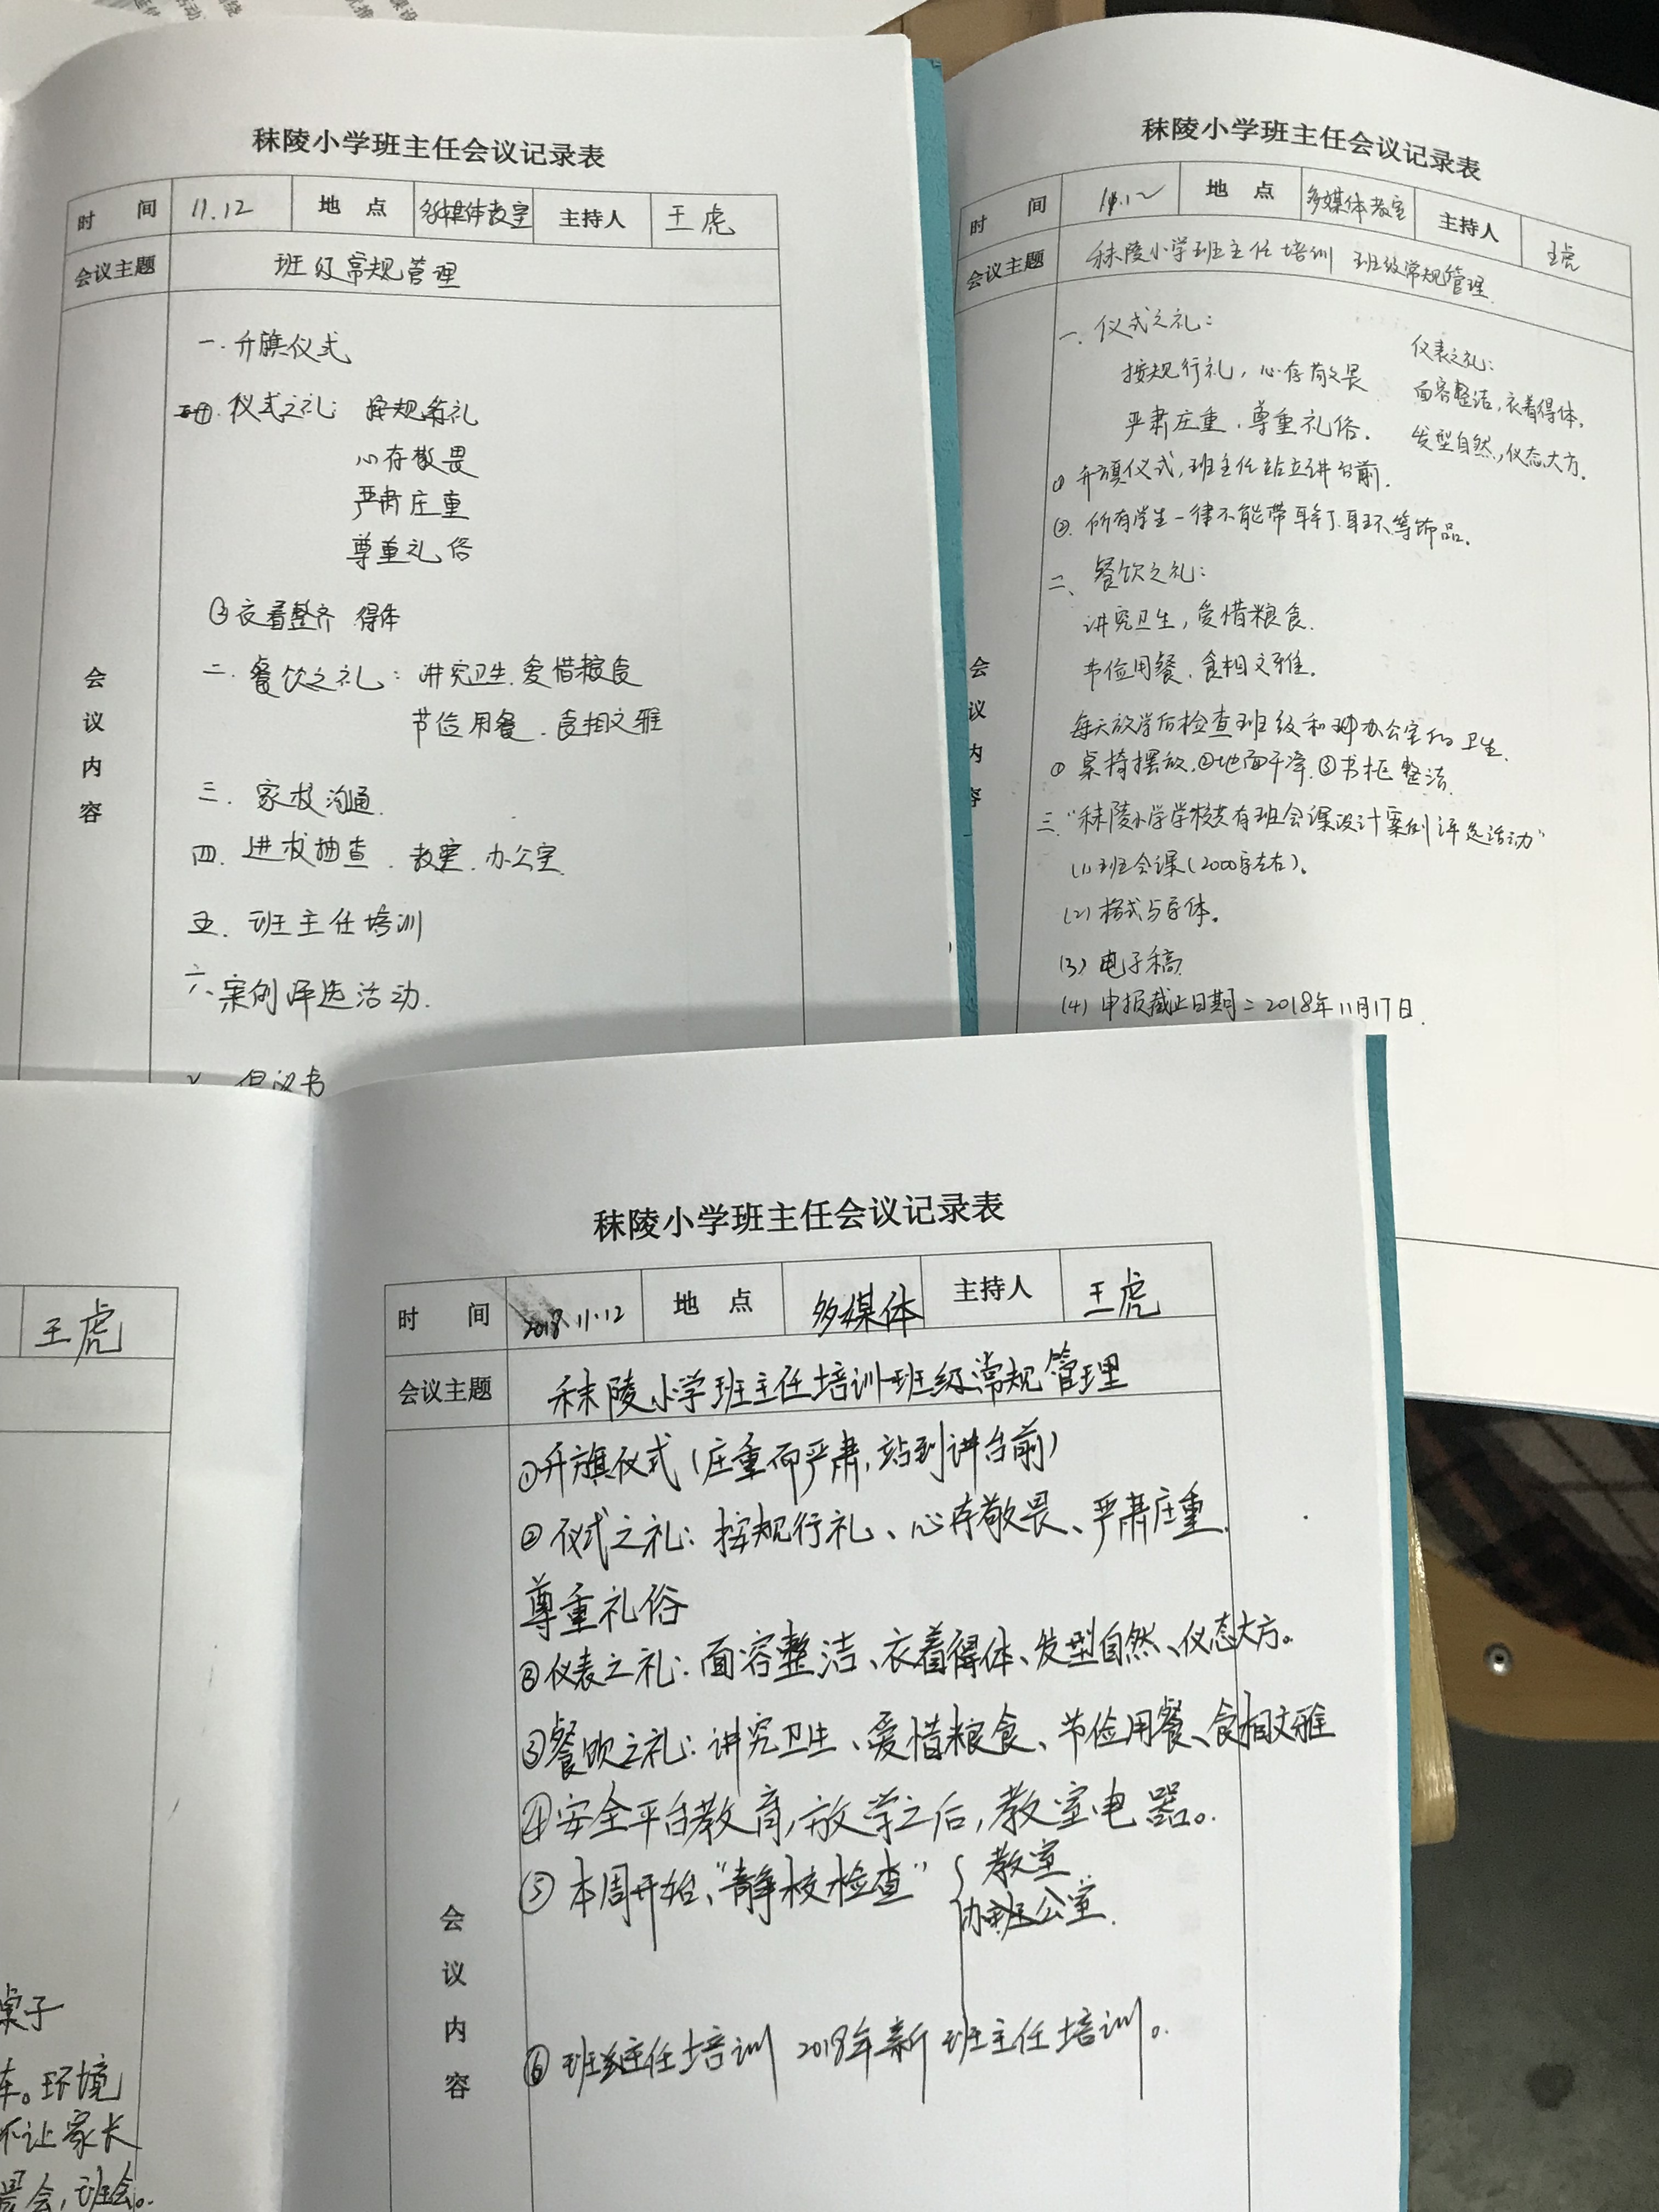 秣陵小学班主任会议记录表
时 间 11.12 地 点 多媒体教室 主持人 王虎
会议主题 班级常规管理
会议内容
一.升旗仪式
仪式之礼: 按规行礼
心存敬畏
严肃庄重
尊重礼俗
③衣着整齐 得体
二.餐饮之礼:讲究卫生.爱惜粮食
节俭用餐.食相文雅
三.家校沟通.
四.进校抽查.教室.办公室.
五.班主任培训
六、案例评选活动.
倡议书
秣陵小学班主任会议记录表
时 间 11.12 地 点 多媒体教室 主持人 王虎
会议主题 秣陵小学班主任培训 班级常规管理.
会议内容
一.仪式之礼:
按规行礼,心存敬畏
严肃庄重.尊重礼俗.
仪表之礼:
面容整洁,衣着得体,
发型自然,仪态大方.
①升旗仪式,班主任站立讲台前.
②.所有学生一律不能带耳钉.耳环等饰品.
二、餐饮之礼:
讲究卫生,爱惜粮食.
节俭用餐.食相文雅.
每天放学后检查班级和办公室的卫生.
①桌椅摆放.②地面干净.③书柜整洁.
三."秣陵小学学校共有班会课设计案例评选活动"
(1)班会课(2000字左右).
(2)格式与字体.
(3)电子稿
(4)申报截止日期:2018年11月17日.
秣陵小学班主任会议记录表
时 间 2018.11.12 地 点 多媒体 主持人 王虎
会议主题 秣陵小学班主任培训班级常规管理
会议内容
①升旗仪式(庄重而严肃,站到讲台前)
②仪式之礼:按规行礼、心存敬畏、严肃庄重.
尊重礼俗
③仪表之礼:面容整洁、衣着得体、发型自然、仪态大方。
③餐饮之礼:讲究卫生、爱惜粮食、节俭用餐、食相文雅
④安全平台教育,放学之后,教室电器。
⑤本周开始、"静校检查" {教室
办公室.
⑥班主任培训 2018年新班主任培训。
王虎
桌子
车。环境
不让家长
会,班会。